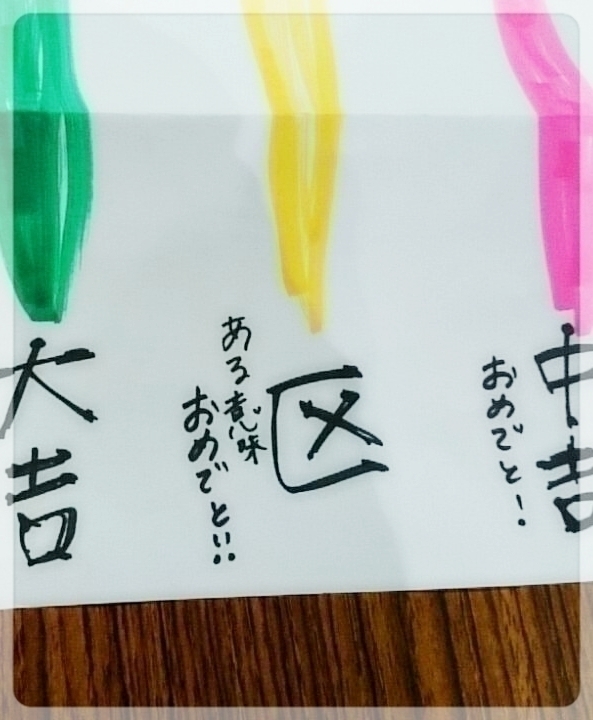 中吉
おめでと！
区
ある意味
おめでと！！
大吉